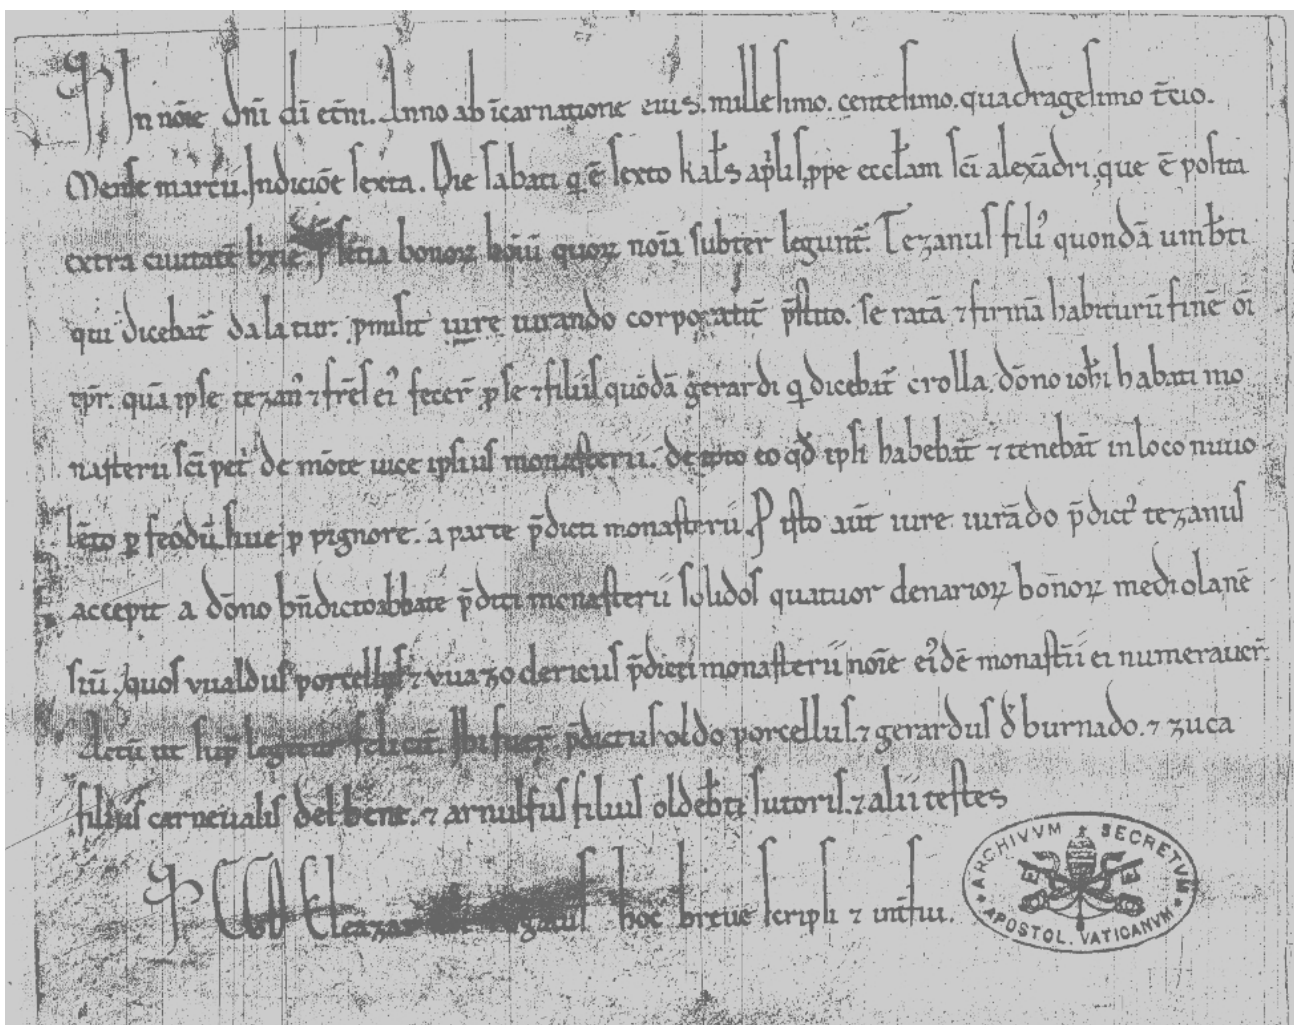 In noīe dn̄i dī et̄ni. Anno ab īcarnatione eius. millesimo. centesimo. quadragesimo t̄cio.
Mense marcii. Indiciōe sexta. Die sabati q̄ ē sexto kal̄s ap̄lis, ppe eccl̄am sc̄i alexādri, que ē posita
extra ciuitatē b̄xie. p̄sētia bonoꝝ hoīū quoꝝ noīa subter legunt̄. Tezanus fili᾽ quondā umb̄ti
qui dicebat̄ da la tur. pmisit iure iurando corporalit̄ p̄stito. se ratā ⁊ firmā habiturū finē oī
tp̄r. quā ipse tezan᾽ ⁊ fr̄es ei᾽ fecer̄ ꝑ se ⁊ filiis quōdā gerardi q̄ dicebat̄ crolla. dōno ioh̄i habati mo
nasterii sc̄i pet̄ de mōte uice ipsius monasterii. de toto eo qd̄ ipsi habebāt ⁊ tenebāt in loco nuuo
lēto ꝑ feodū siue ꝑ pignore. a parte p̄dicti monasterii. P isto aut̄ iure iurādo p̄dict᾽ tezanus
accepit a dōno bn̄dicto abbate p̄diti monasterii solidos quatuor denarioꝝ bonoꝝ mediolanē
siū. quos vualdus porcellus ⁊ vuazo clericus p̄dicti monasterii noīe ei᾽dē monast̄ii ei numeraver̄.
Actū ut sup̄ legitur feliciт̄. Ibi fuer̄ p̄dictus oldo porcellus. ⁊ gerardus d̄ burnado. ⁊ zuca
filius carneualis del bene. ⁊ arnulfus filius oldeb̄ti sutoris. ⁊ alii testes
Ego Eleazar rogatus hoc breue scripsi ⁊ int̄fui.
ARCHIVVM SECRETVM APOSTOL. VATICANVM